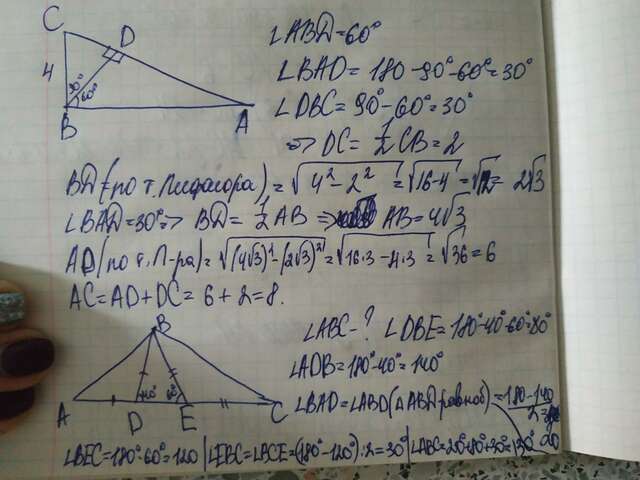 C
D
4
30°
60°
B
A
∠ABD=60°
∠BAD = 180-90°-60°=30°
∠DBC= 90°-60°=30°
=> DC= 1/2 CB=2
BD(по т. Пифагора)= √4²-2² = √16-4 = √12 = 2√3
∠BAD=30°=> BD= 1/2 AB => AB=4√3
AD(по т. П-ра)= √(4√3)²-(2√3)² = √16·3-4·3 = √36=6
AC=AD+DC= 6+2=8.
B
A
D
E
C
40°
60°
∠ABC-? ∠DBE=180°-40°-60°=80°
∠ADB=180°-40°=140°
∠BAD=∠ABD(△ABD равноб)= 180-140/2 = 20
∠BEC=180°-60°=120 | ∠EBC=∠BCE=(180°-120°):2=30° | ∠ABC=20°+80°+30°=130°